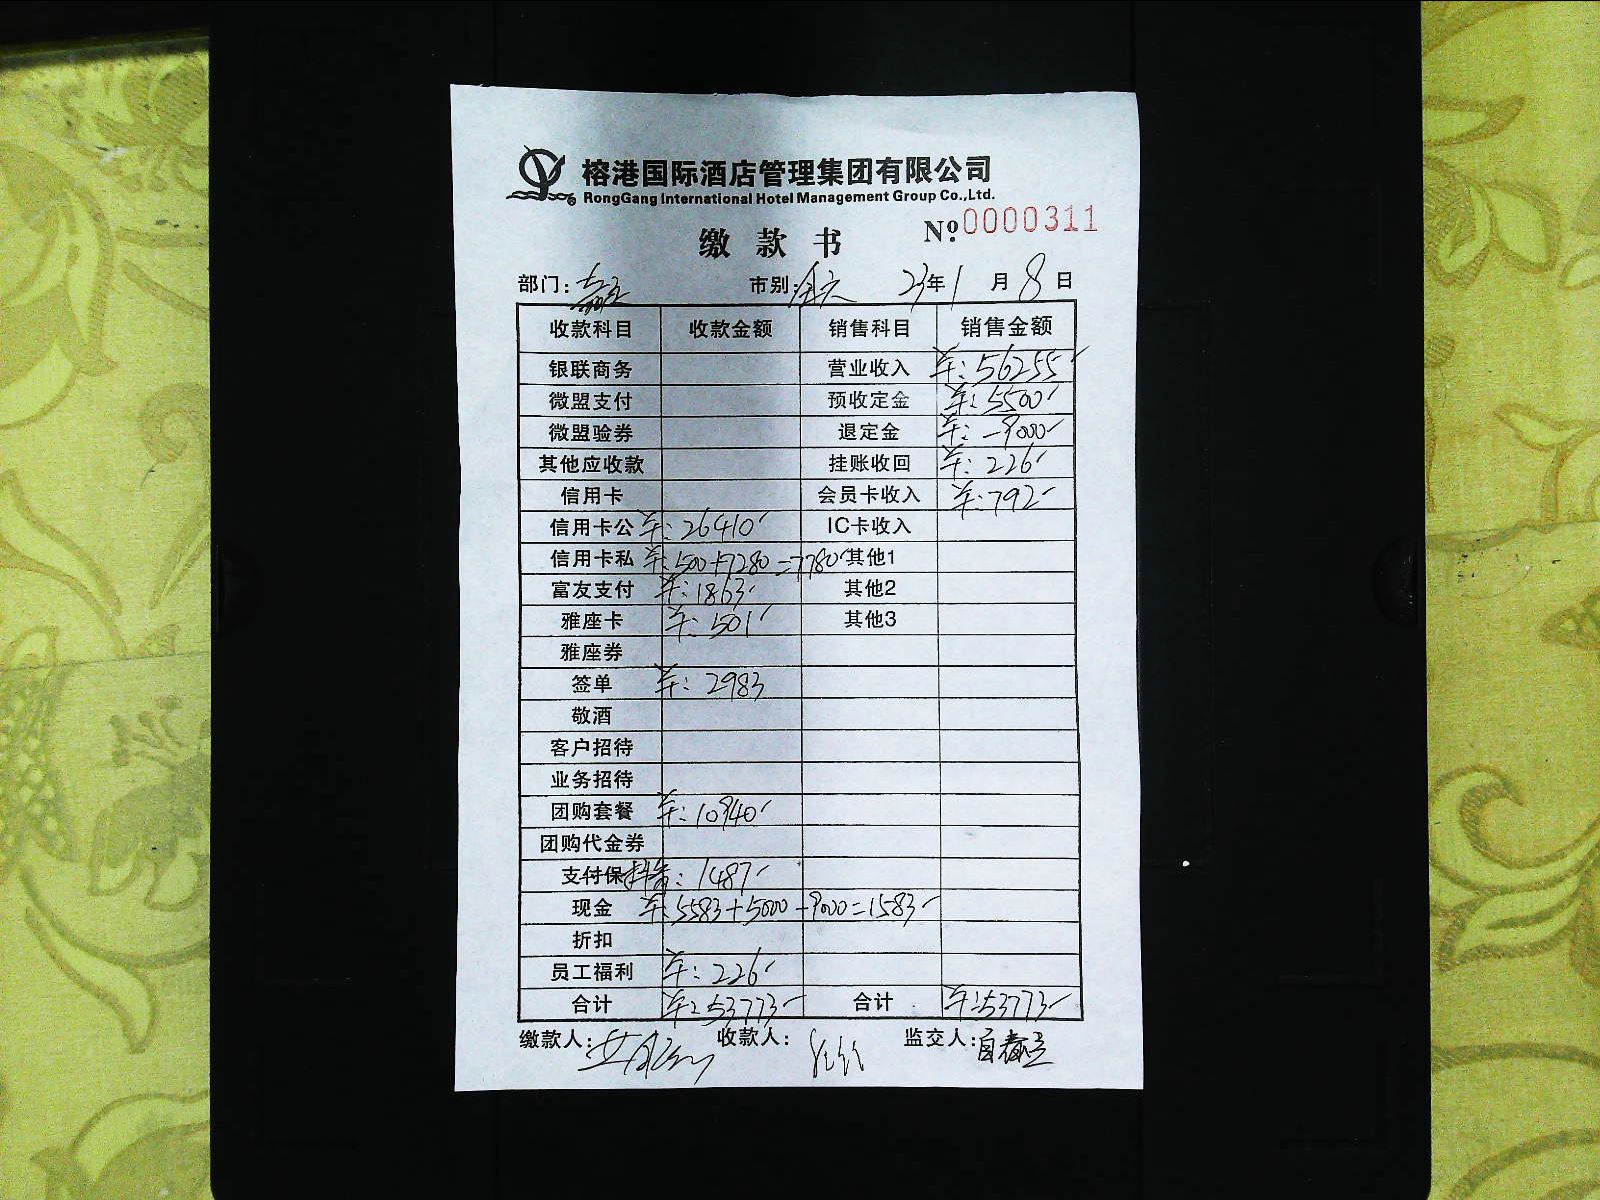 榕港国际酒店管理集团有限公司
RongGang International Hotel Management Group Co.,Ltd.
缴款书 №0000311
部门: 市别: 23年1月8日
收款科目 收款金额 销售科目 销售金额
银联商务 营业收入 羊:56255
微盟支付 预收定金 羊:5500
微盟验券 退定金 羊:-9000
其他应收款 挂账收回 羊:226
信用卡 会员卡收入 羊:792
信用卡公 羊:26410 IC卡收入
信用卡私 羊:500+7280=7780 其他1
富友支付 羊:1863 其他2
雅座卡 羊:501 其他3
雅座券
签单 羊:2983
敬酒
客户招待
业务招待
团购套餐 羊:10940
团购代金券
支付保 抖音:1487
现金 羊:5583+5000-9000=1583
折扣
员工福利 羊:226
合计 羊:53773 合计 羊:53773
缴款人: 收款人: 监交人: